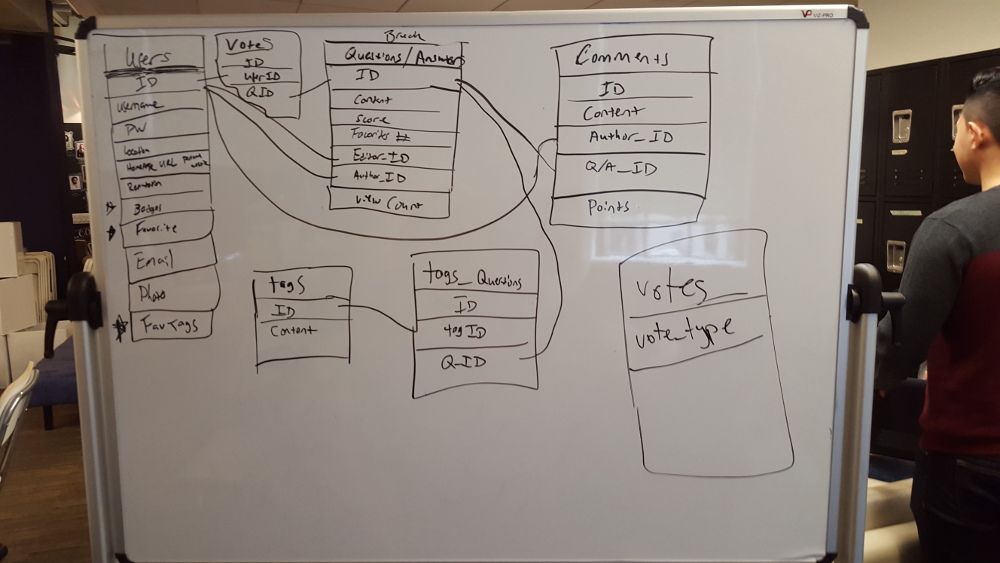 VIZ-PRO
Users
ID
username
PW
Location
Homepage URL
Badges
Favorite
Email
Photo
Fav Tags
Votes
ID
UserID
QID
Break
Questions/Answers
ID
Content
Score
Favorites #
Editor_ID
Author_ID
View Count
Comments
ID
Content
Author_ID
Q/A_ID
Points
tags
ID
Content
tags_Questions
ID
tag ID
Q_ID
votes
vote_type